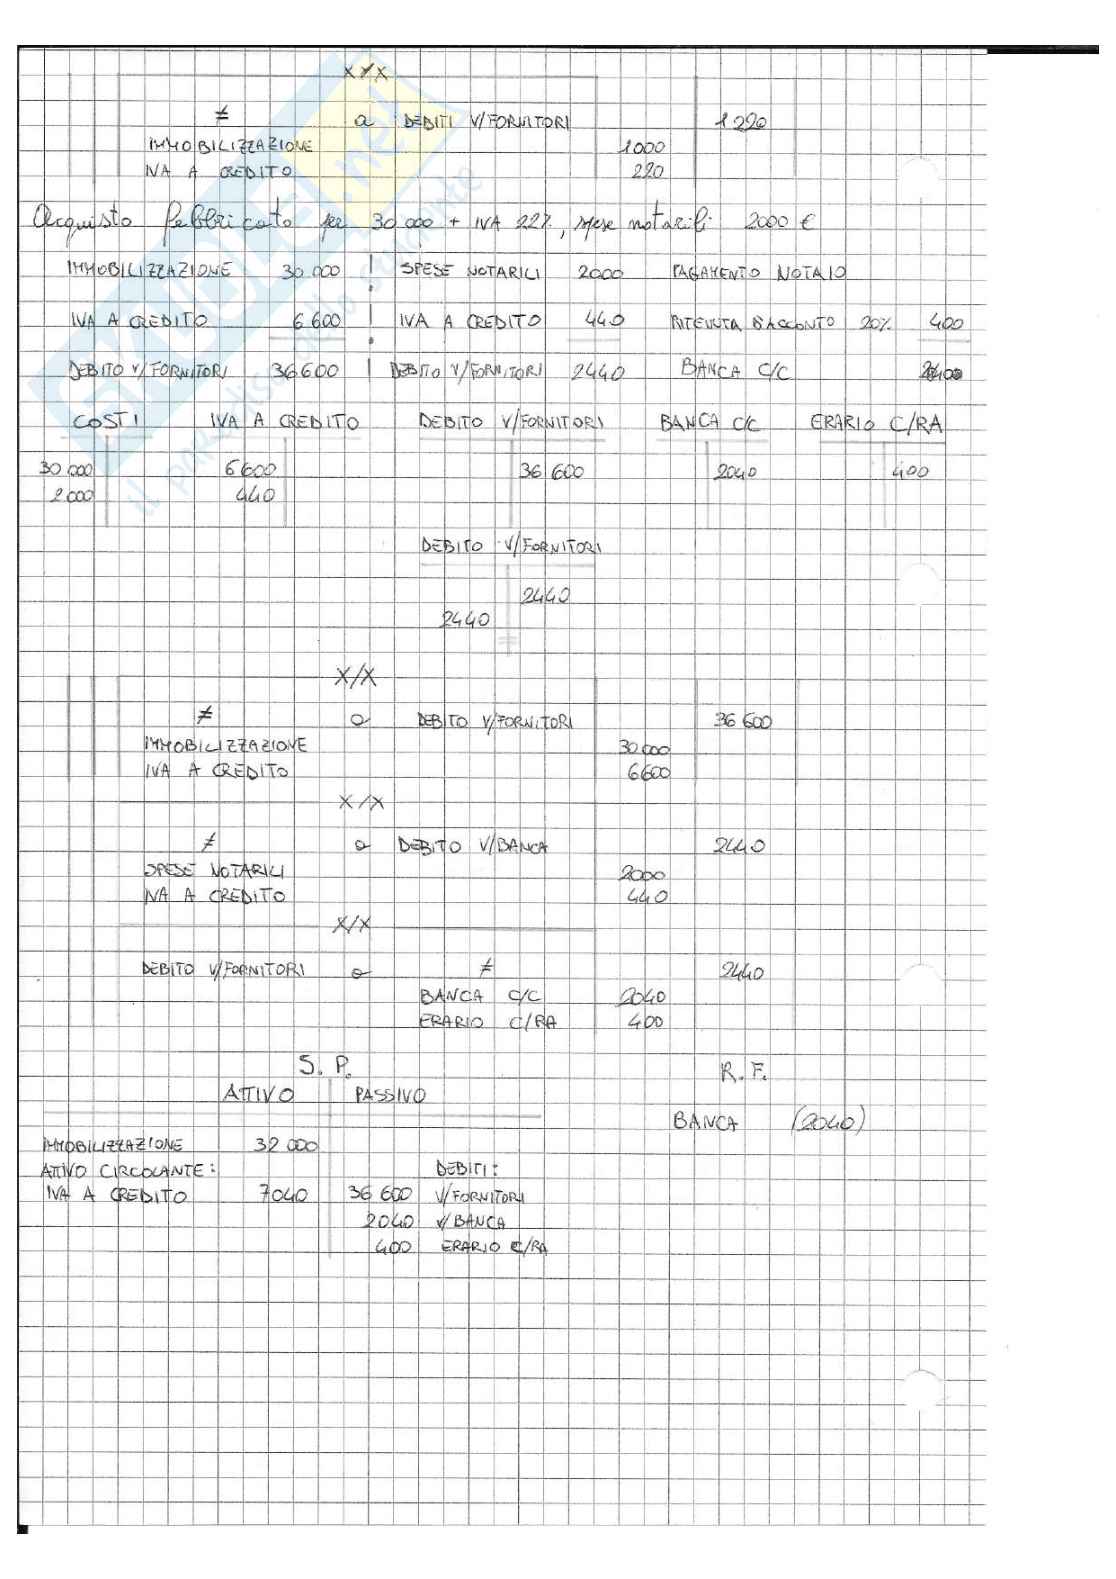 X/X
≠ a DEBITI V/FORNITORI 1220
IMMOBILIZZAZIONE 1000
IVA A CREDITO 220
Acquisto fabbricato per 30 000 + IVA 22%, spese notarili 2000 €
IMMOBILIZZAZIONE 30 000 SPESE NOTARILI 2000 PAGAMENTO NOTAIO
IVA A CREDITO 6 600 IVA A CREDITO 440 RITENUTA D'ACCONTO 20% 400
DEBITO V/FORNITORI 36600 DEBITO V/FORNITORI 2440 BANCA C/C
COSTI IVA A CREDITO DEBITO V/FORNITORI BANCA C/C ERARIO C/RA
30 000 6600 36 600 2040 400
2 000 440
DEBITO V/FORNITORI
2440
2440
X/X
≠ a DEBITO V/FORNITORI 36 600
IMMOBILIZZAZIONE 30 000
IVA A CREDITO 6600
X/X
≠ a DEBITO V/BANCA 2440
SPESE NOTARILI 2000
IVA A CREDITO 440
X/X
DEBITO V/FORNITORI a ≠ 2440
BANCA C/C 2040
ERARIO C/RA 400
S. P. R. F.
ATTIVO PASSIVO
BANCA (2040)
IMMOBILIZZAZIONE 32 000
ATTIVO CIRCOLANTE: DEBITI:
IVA A CREDITO 7040 36 600 V/FORNITORI
2040 V/BANCA
400 ERARIO C/RA
SKUOLA.net
il paradiso dello studente